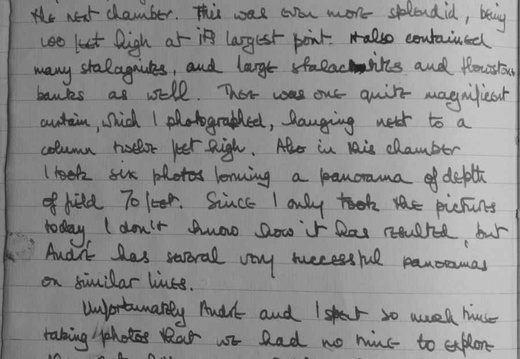 the next chamber. This was even more splendid, being
100 feet high at its largest point. It also contained
many stalagmites, and large stalactites and flowstone
banks as well. There was one quite magnificent
curtain, which I photographed, hanging next to a
column twelve feet high. Also in this chamber
I took six photos forming a panorama of depth
of field 70 feet. Since I only took the pictures
today, I don't know how it has resulted, but
André has several very successful panoramas
on similar lines.
Unfortunately André and I spent so much time
taking photos that we had no time to explore